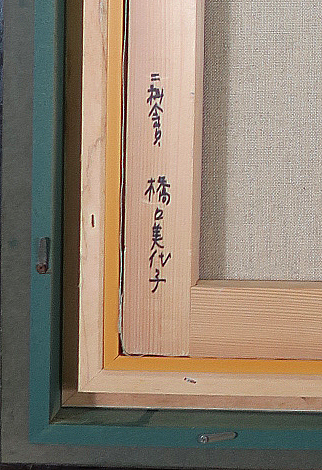 二科会会員 橋口美代子